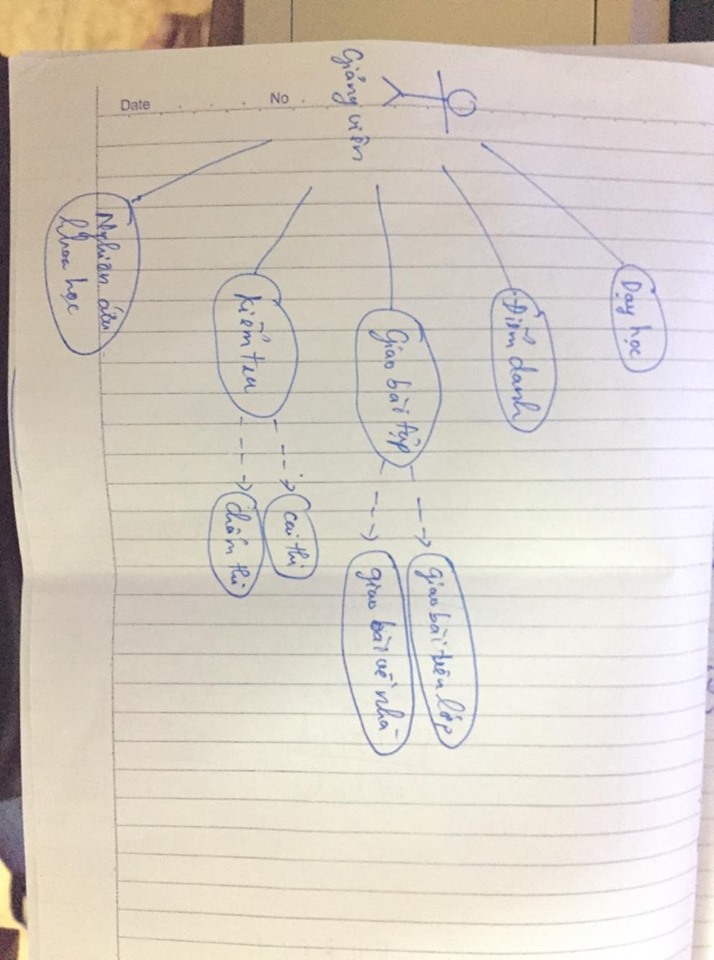 Date
No
Giảng viên
Dạy học
Điểm danh
Giao bài tập
giao bài trên lớp
giao bài về nhà
Kiểm tra
coi thi
chấm thi
Nghiên cứu
khoa học